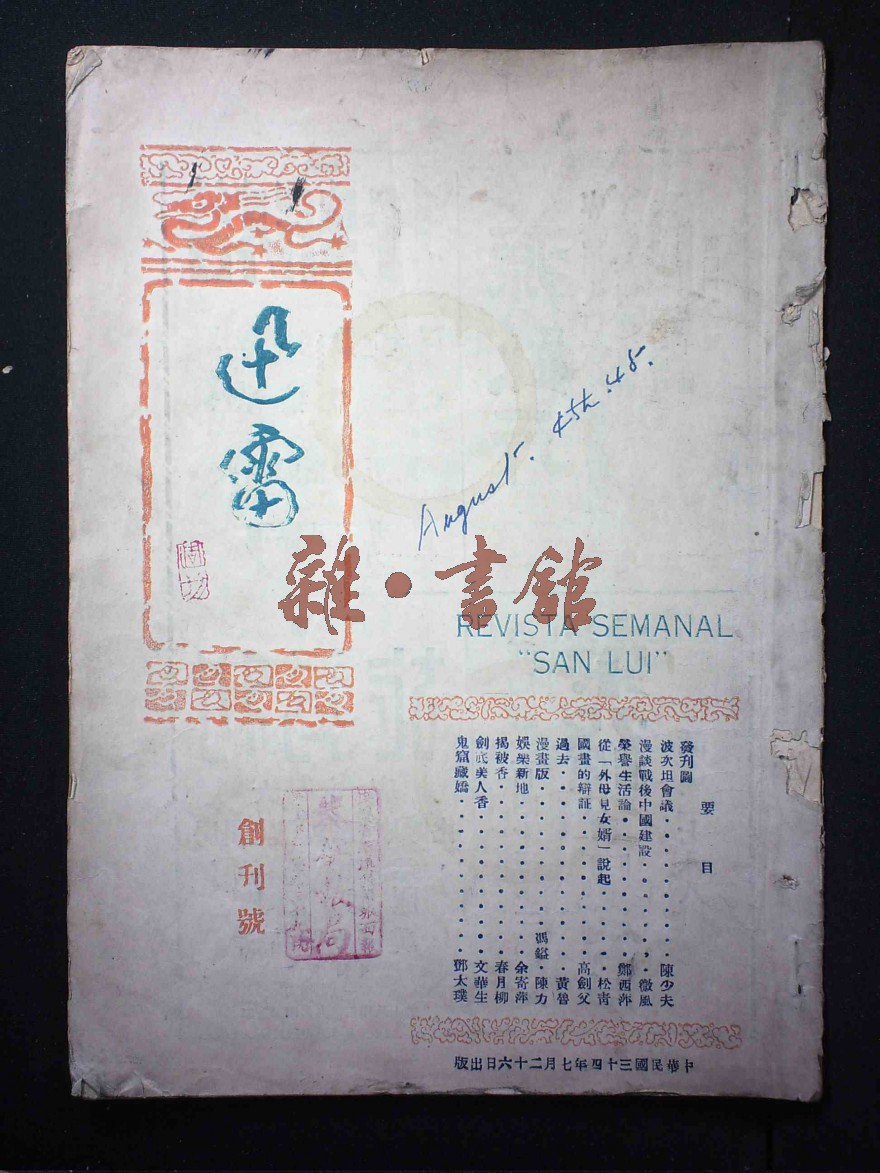 迅雷
August. 4th. 45.
雜·書館
REVISTA SEMANAL
"SAN LUI"
要目
發刊圖
波次坦會議·陳少夫
漫談戰後中國建設·微風
榮譽生活論·鄭西萍
從「外母見女婿」說起·松青
國畫的辯証·高劍父
過去·黃魯
漫畫版·馮鎰·陳力
娛樂新地·余寄萍
揭被香·春月柳
劍底美人香·文華生
鬼窟藏嬌·鄧太璞
創刊號
中華民國三十四年七月二十六日出版